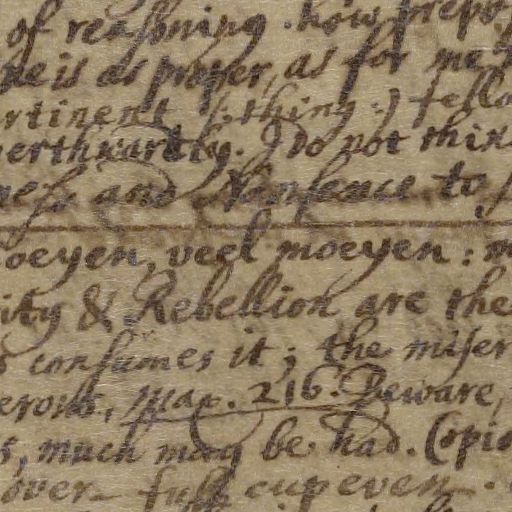 of reasoning. how prepo
ne is as proper, as for me t
rtinent (: thing :) fello
verthwartly. I do not thin
ness and Nonsence to
oeyen, veel moeyen: m
ity & Rebellion are the
s consumes it; the miser
erous. Max. 216. Beware,
s, much may be had. Copio
over full cup even.